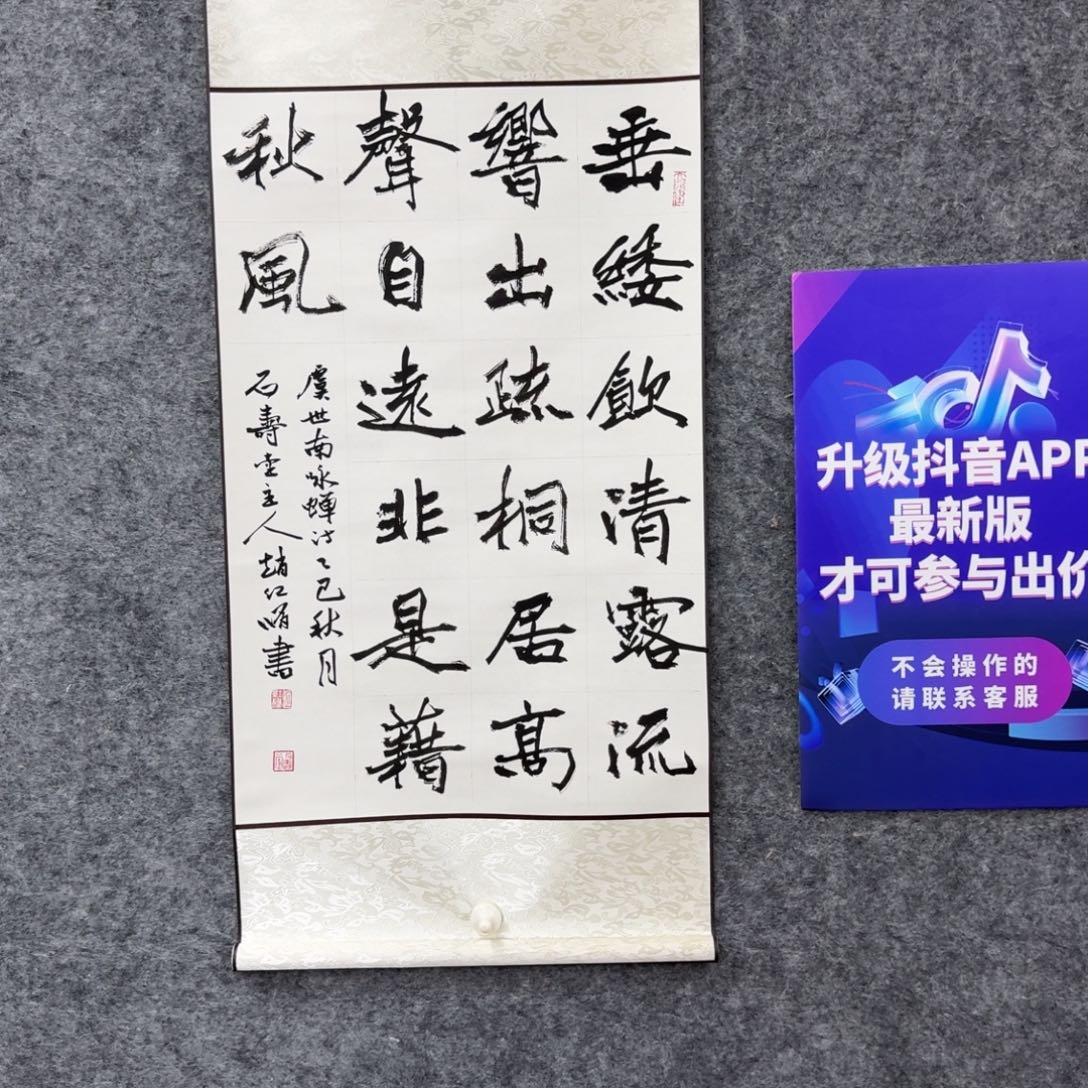 垂緌飲清露流
響出疏桐居高
聲自遠非是藉
秋風
虞世南咏蟬诗乙巳秋月
石壽堂主人趙江書
升级抖音APP
最新版
才可参与出价
不会操作的
请联系客服